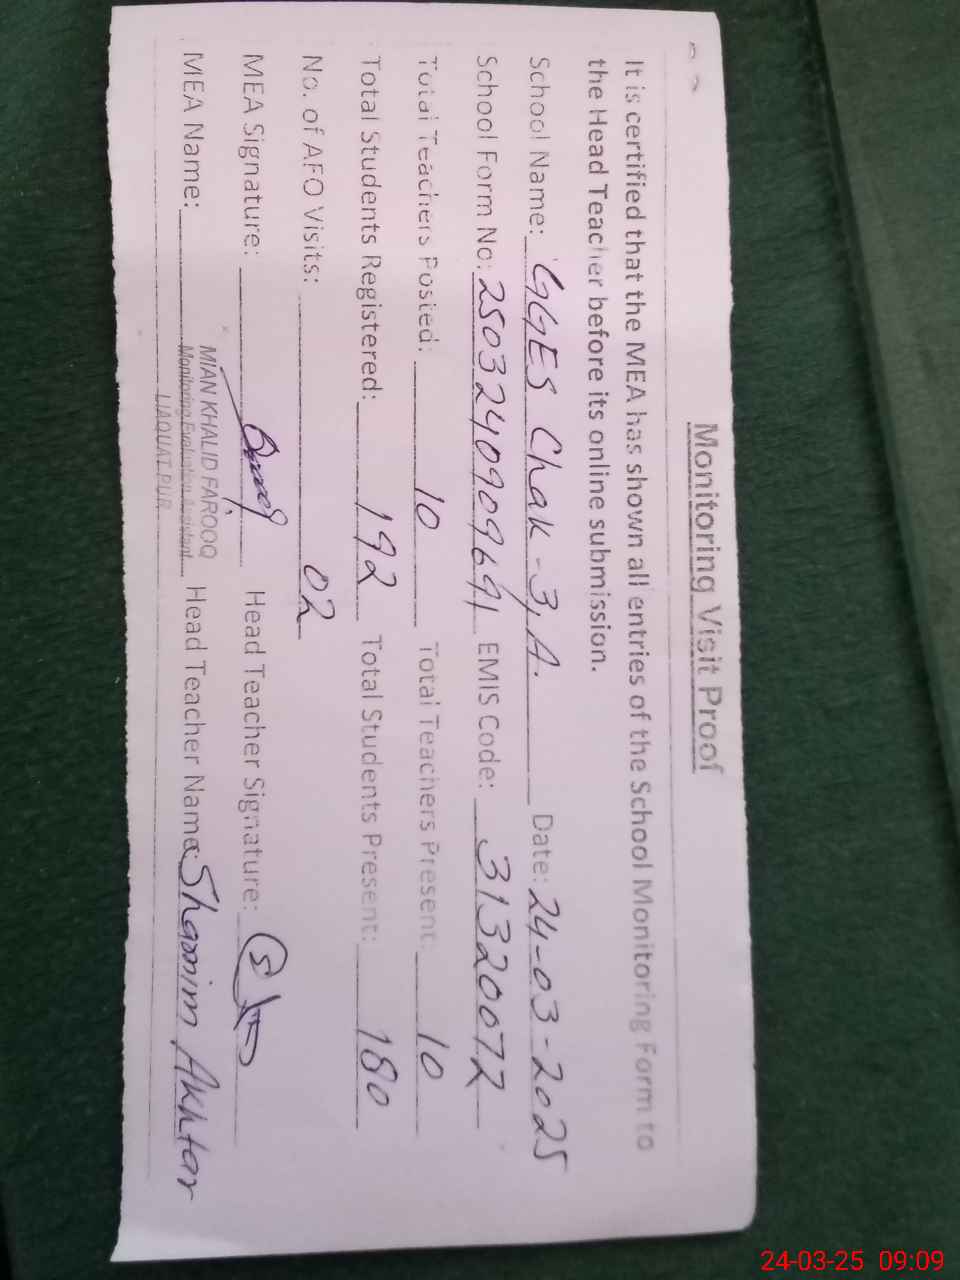 Monitoring Visit Proof
It is certified that the MEA has shown all entries of the School Monitoring Form to
the Head Teacher before its online submission.
School Name: GGES Chak-3/A. Date: 24-03-2025
School Form No: 25032409096691 EMIS Code: 31320072
Total Teachers Posted: 10 Total Teachers Present: 10
Total Students Registered: 192 Total Students Present: 180
No. of AEO Visits: 02
MEA Signature: Head Teacher Signature:
MIAN KHALID FAROOQ
MEA Name: Monitoring Evaluation Assistant Head Teacher Name: Shamim Akhtar
LIAQUAT PUR
24-03-25 09:09